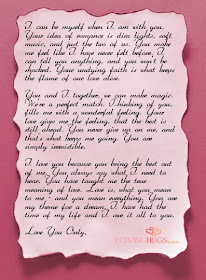 I can be myself when I am with you.
Your idea of romance is dim lights, soft
music, and just the two of us. You make
me feel like I have never felt before, I
can tell you anything, and you won't be
shocked. Your undying faith is what keeps
the flame of our love alive.
You and I together, we can make magic.
We're a perfect match. Thinking of you,
fills me with a wonderful feeling. Your
love gives me the feeling, that the best is
still ahead. You never give up on me, and
that's what keeps me going. You are
simply irresistible.
I love you because you bring the best out
of me. You always say what I need to
hear. You have taught me the true
meaning of love. Love is, what you mean
to me - and you mean everything. You are
my theme for a dream. I have had the
time of my life and I owe it all to you.
Love You Only,
LOVINGHUGS.com